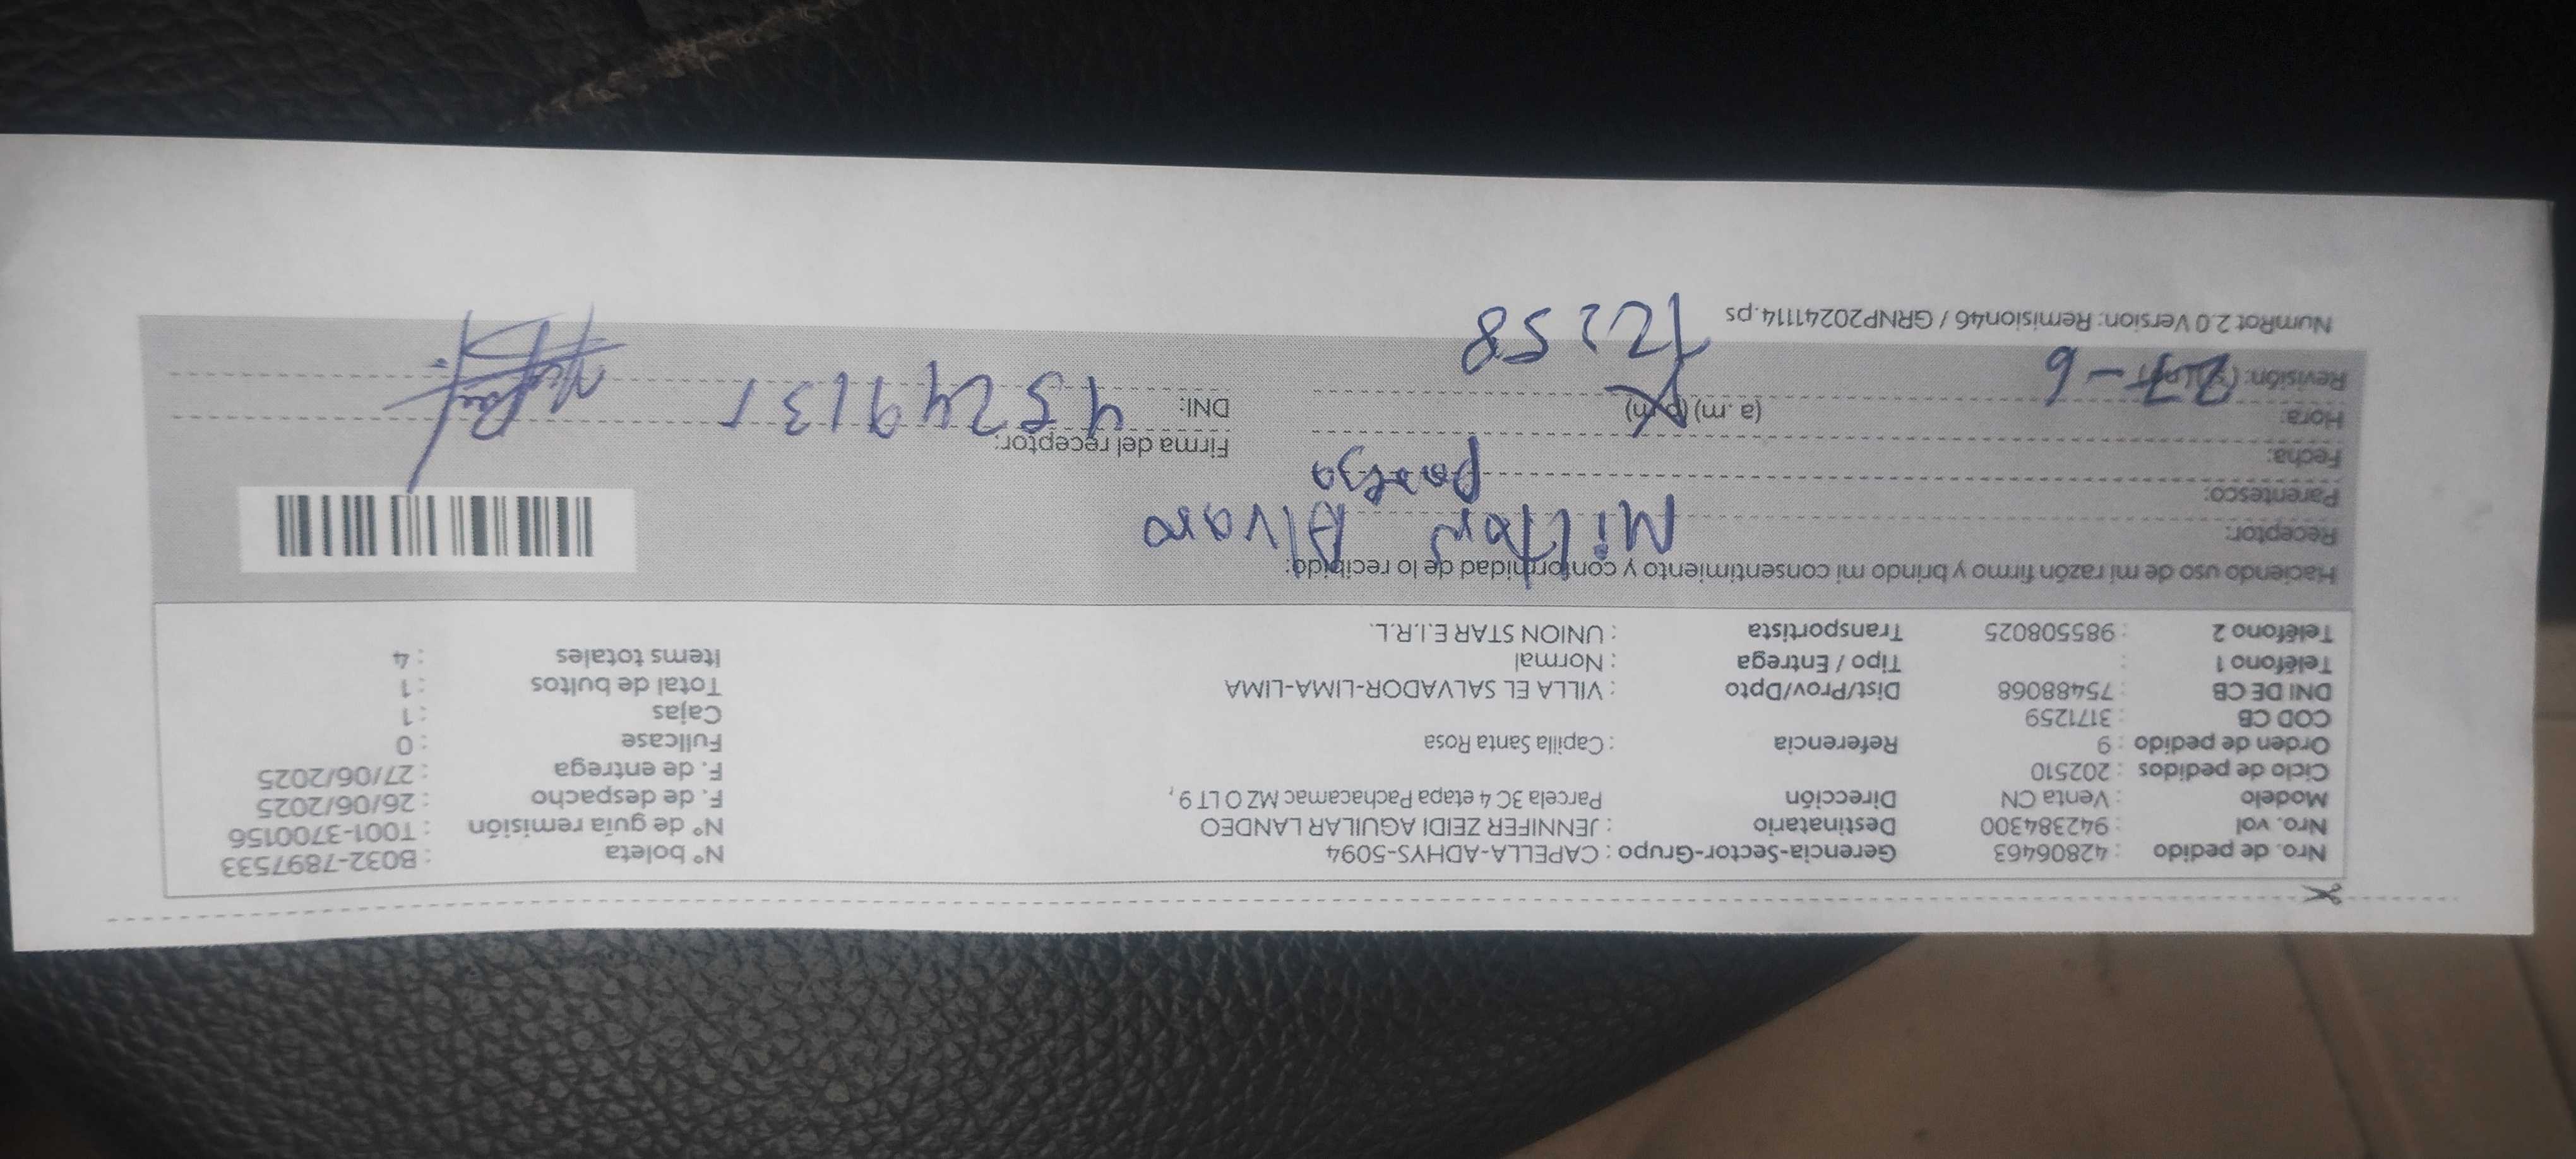 Nro. de pedido : 42806463 Gerencia-Sector-Grupo : CAPELLA-ADHYS-5094 N° boleta : B032-7897533
Nro. vol : 942384300 Destinatario : JENNIFER ZEIDI AGUILAR LANDEO N° de guía remisión : T001-3700156
Modelo : Venta CN Dirección Parcela 3C 4 etapa Pachacamac MZ O LT 9 , F. de despacho : 26/06/2025
Ciclo de pedidos : 202510 F. de entrega : 27/06/2025
Orden de pedido : 9 Referencia : Capilla Santa Rosa Fullcase : 0
COD CB : 3171259 Cajas : 1
DNI DE CB : 75488068 Dist/Prov/Dpto : VILLA EL SALVADOR-LIMA-LIMA Total de bultos : 1
Teléfono 1 : Tipo / Entrega : Normal Items totales : 4
Teléfono 2 : 985508025 Transportista : UNION STAR E.I.R.L.
Haciendo uso de mi razón firmo y brindo mi consentimiento y conformidad de lo recibido:
Receptor: Milton Alvaro
Parentesco: pareja
Fecha: Firma del receptor:
Hora: (a.m) (p.m) DNI:
Revisión: (si) (no) 27-6
NumRot 2.0 Version: Remision46 / GRNP20241114.ps